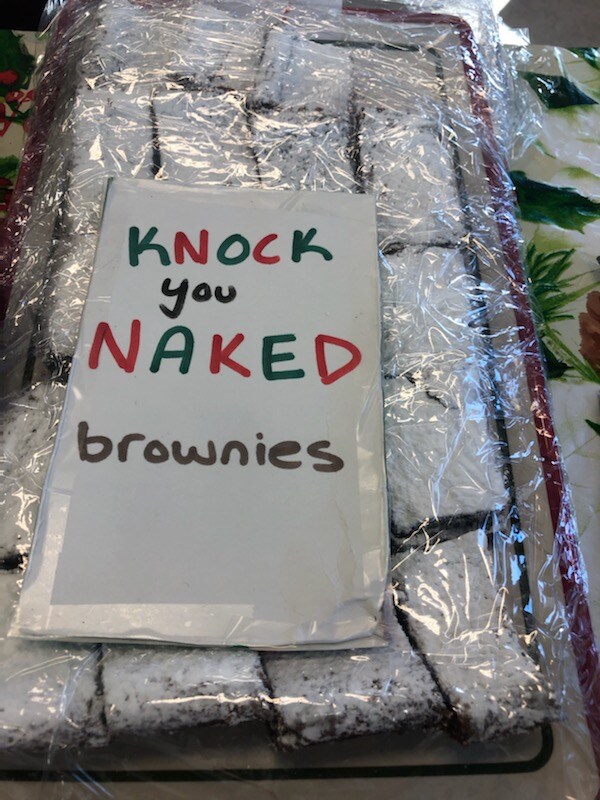 KNOCK
you
NAKED
brownies